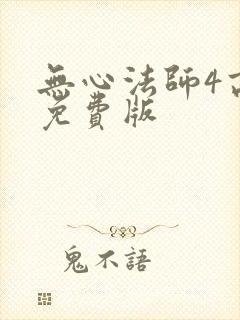 無心法師4
免費版
鬼不語